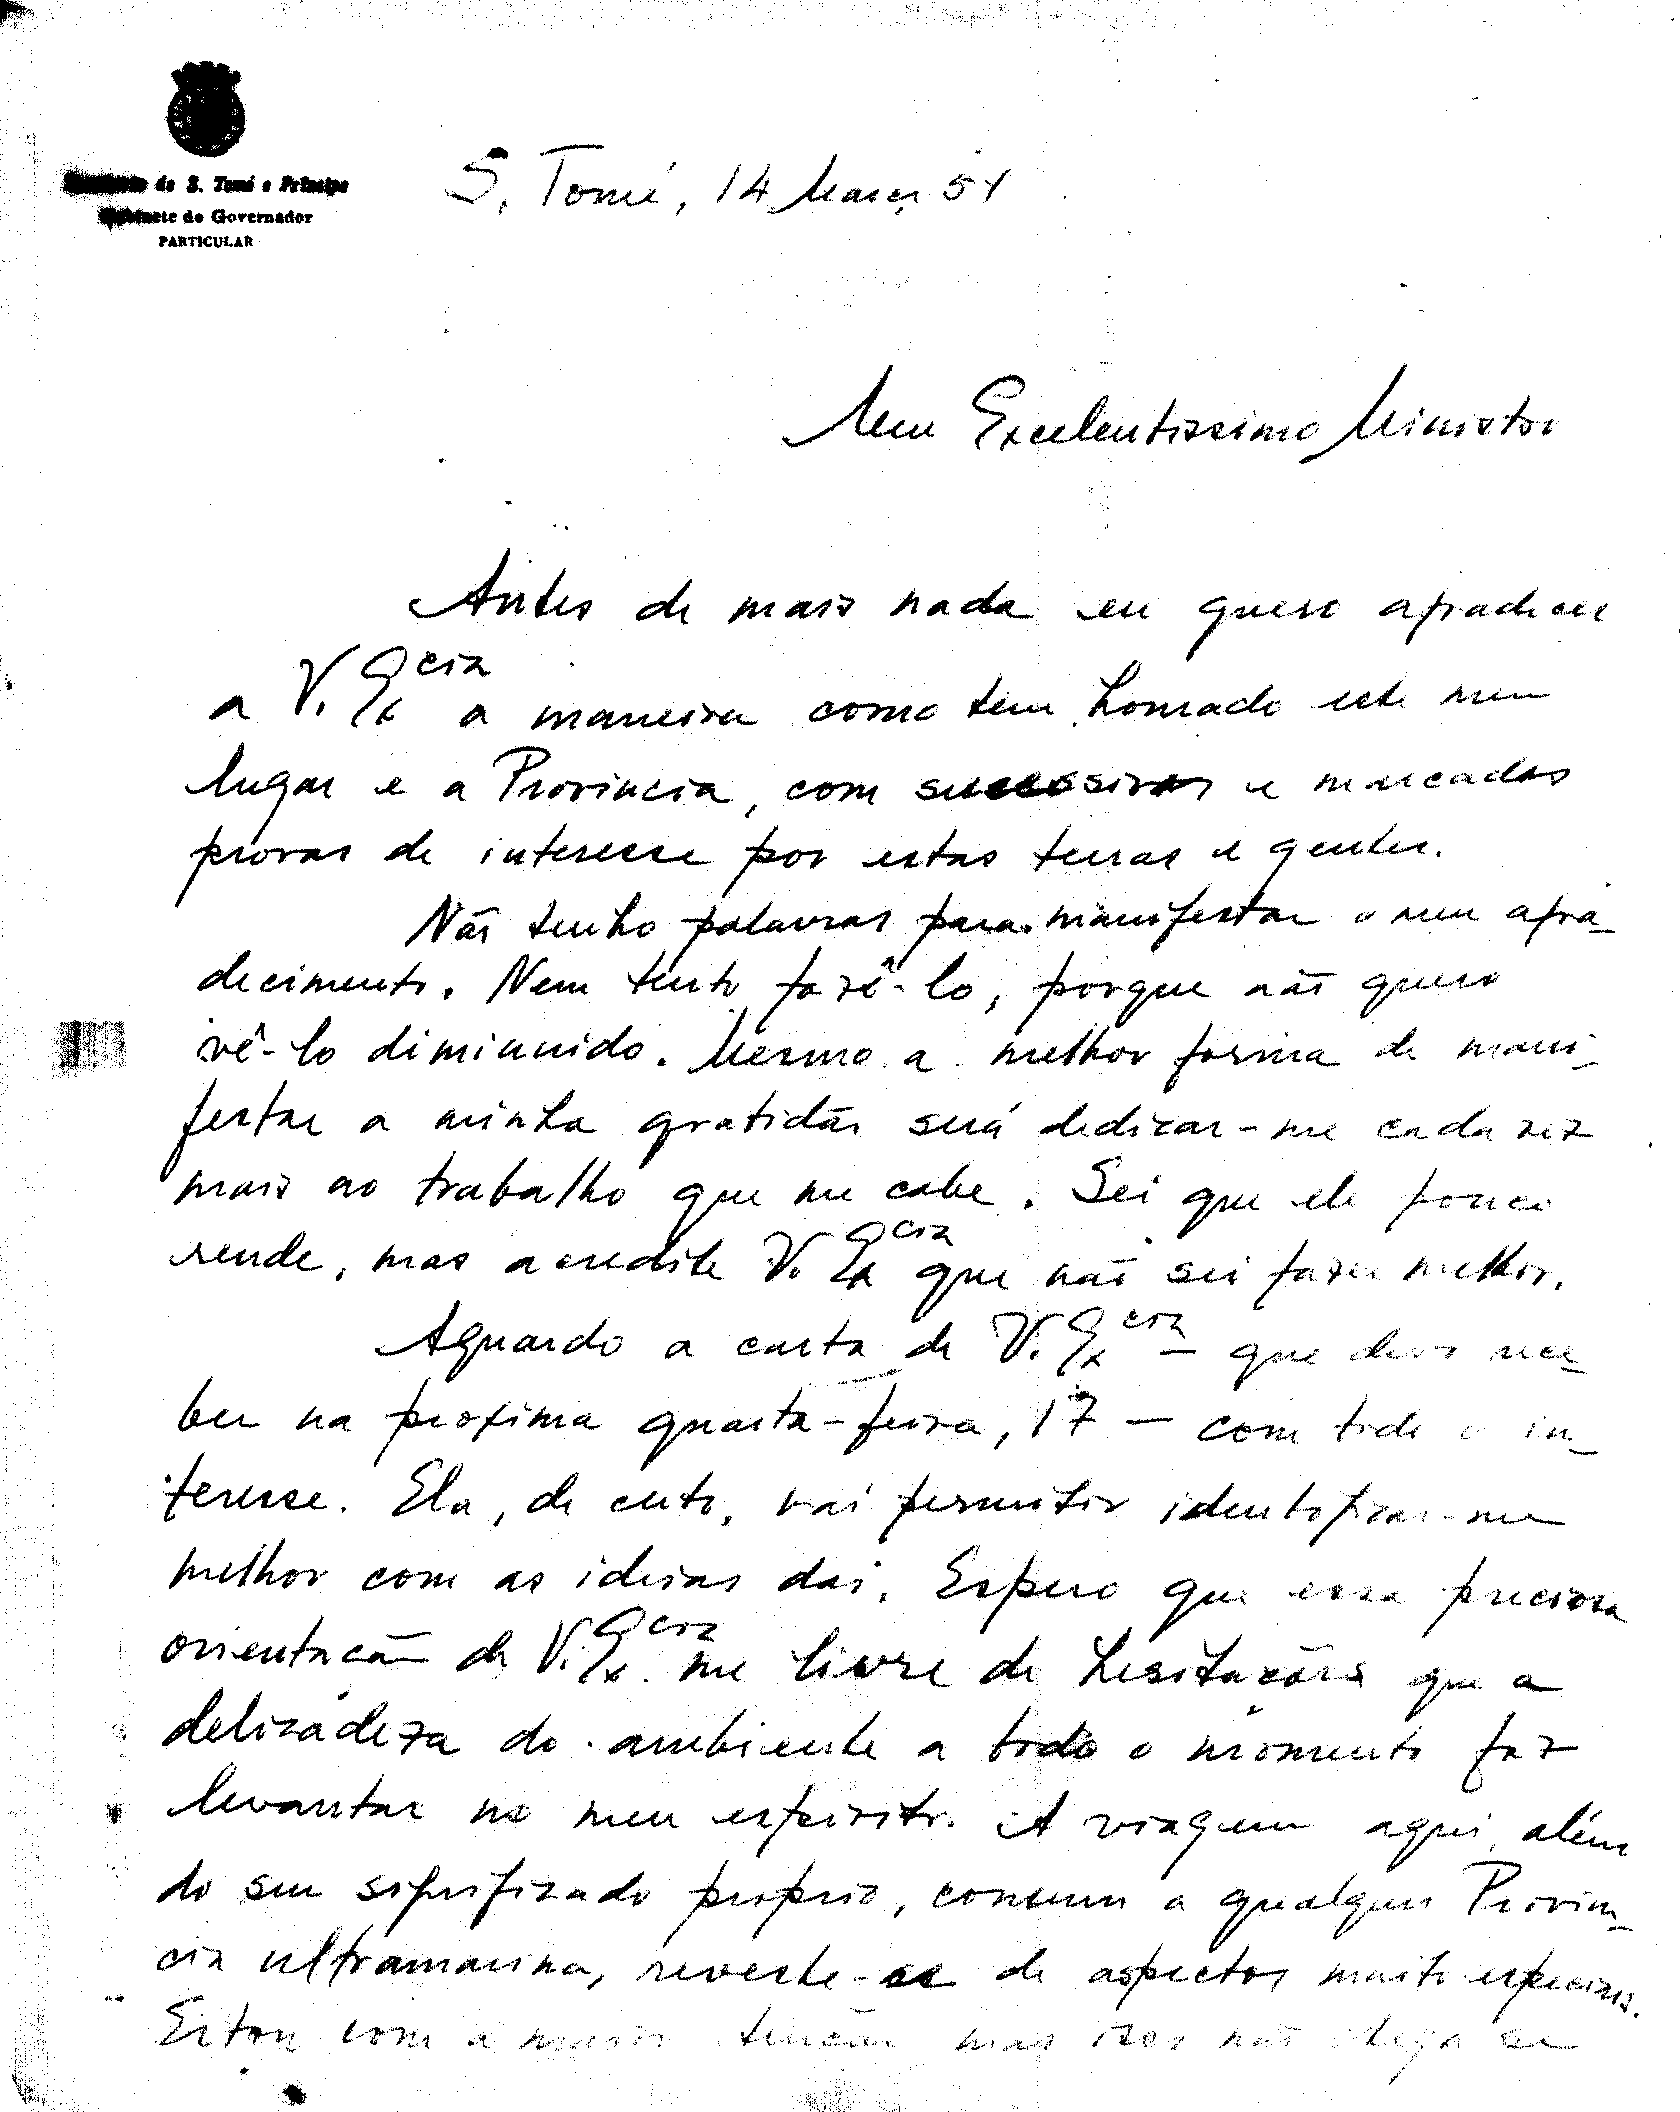 de S. Tomé e Príncipe
Gabinete do Governador
PARTICULAR
S. Tomé, 14 Março 54
Meu Excelentissimo Ministro
Antes de mais nada eu quero agradecer
a V. Excia a maneira como tem honrado este meu
lugar e a Provincia, com sucessivas e marcadas
provas de interesse por estas terras e gentes.
Não tenho palavras para manifestar o meu agra-
decimento. Nem tento fazê-lo, porque não quero
vê-lo diminuido. Mesmo a melhor forma de mani-
festar a minha gratidão será dedicar-me cada vez
mais ao trabalho que me cabe. Sei que ele pouco
rende, mas acredite V. Excia que não sei fazer melhor.
Aguardo a carta de V. Excia - que devo rece-
ber na proxima quarta-feira, 17 - com todo o in-
teresse. Ela, de certo, vai permitir identificar-me
melhor com as ideias daí. Espero que essa preciosa
orientação de V. Excia me livre de hesitações que a
delicadeza do ambiente a todo o momento faz
levantar no meu espirito. A viagem aqui, além
do seu significado proprio, comum a qualquer Provin-
cia ultramarina, reveste-se de aspectos muito especiais.
Estou com a mas isso não chega se